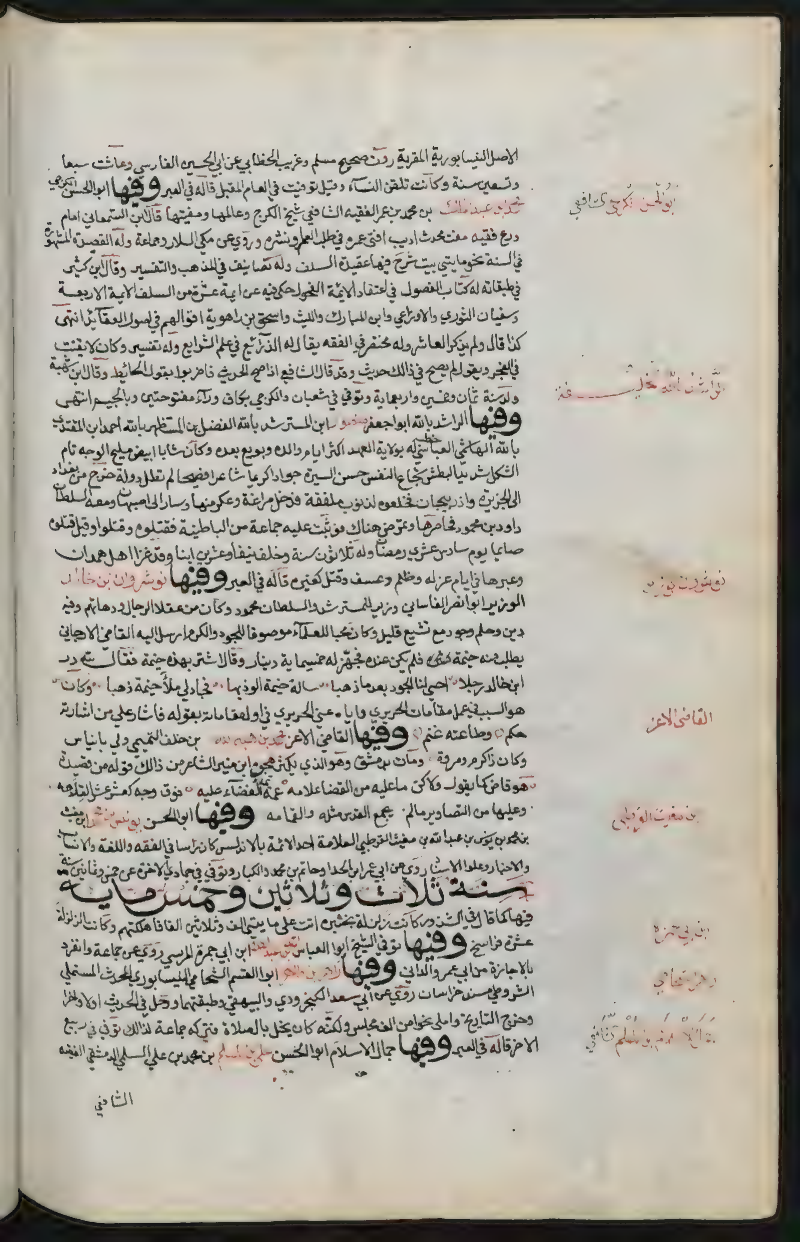 الاصل النيسابورية المقرية روت صحيح مسلم وغريب الخطابي عن ابي الحسين الفارسي وعاشت سبعا
وتسعين سنة وكانت تلقن النساء وقيل توفيت في العام المقبل قاله في العبر وفيها ابو الحسن الكرجي
محمد بن عبد الملك بن محمد بن عمر الفقيه الشافعي شيخ الكرج وعالمها ومفتيها قال ابن السمعاني امام
ورع فقيه مفت محدث اديب افنى عمره في طلب العلم ونشره وروى عن مكي السلار وجماعة وله القصيدة المشهورة
في السنة نحو مايتي بيت شرح فيها عقيدة السلف وله تصانيف في المذهب والتفسير وقال ابن كثير
في طبقاته له كتاب الفصول في اعتقاد الائمة الفحول حكى فيه عن ايمة عشرة من السلف الايمة الاربعة
وسفيان الثوري والاوزاعي وابن المبارك والليث واسحق بن راهوية اقوالهم في اصول العقائد انتهى
كذا قال ولم يذكر العاشر وله مختصر في الفقه يقال له الذرائع في علم الشرايع وله تفسير وكان لا يقنت
في الفجر ويقول لم يصح في ذالك حديث وقد قال الشافعي اذا صح الحديث فاضربوا بقولي الحائط وقال ابن شهبة
ولد سنة ثمان وخمسين واربعماية وتوفي في شعبان والكرجي بكاف وراء مفتوحتين وبالجيم انتهى
وفيها الراشد بالله ابو جعفر منصور ابن المسترشد بالله الفضل بن المستظهر بالله احمد ابن المقتدي
بالله الهاشمي العباسي خطب له بولاية العهد اكثر ايام والده وبويع بعده وكان شابا ابيض مليح الوجه تام
الشكل شديد البطش شجاع النفس حسن السيرة جوادا كريما شاعرا فصيحا لم تطل دولة خرج من بغداد
الى الجزيرة واذربيجان فخلعوه لذنوب ملفقة فدخل مراغة وعسكر منها وسار الى اصبهان ومعه السلطان
داود بن محمود فحاصرها وتمرض هناك فوثبت عليه جماعة من الباطنية فقتلوه وقتلوا وقيل قتلوه
صايما يوم سادس عشري رمضان وله ثلاثون سنة وخلف نيفا وعشرين ابنا وقد غزا اهل همدان
وعبرها في ايام عزله وظلم وعسف وقتل كغيره قاله في العبر وفيها نوشروان بن خالد
الوزير ابو نصر القاساني وزير المسترشد والسلطان محمود وكان من عقلا الرجال ودهاتهم وفيه
دين وحلم وجود مع تشيع قليل وكان محبا للعلماء موصوفا للجود والكرم ارسل اليه القاضي الارجاني
يطلب منه خيمة فلم يكن عنده فجهز له خمسماية دينار وقال اشتر بهذه خيمة فقال لله در
ابن خالد رجلا احيى لنا الجود بعد ما ذهبا سالته خيمة الوذ بها فجاد لي ملأ خيمة ذهبا وكان
هو السبب في عمل مقامات الحريري واياه عنى الحريري في اول مقاماته بقوله فاشار علي من اشارته
حكم وطاعته غنم وفيها القاضي الاعز محمد بن هبة الله بن خلف التميمي ولي بانياس
وكان ذا كرم ومروة ومات بدمشق وهو الذي يكثر هجوه ابن منير الشاعر من ذالك قوله من قصيدة
هو قاض كما يقول ولاكن ما عليه من القضا علامه
وعليها من التصاوير مالم يجمع القدس مثله والقمامه وفيها ابو الحسن يونس بن محمد ابن مغيث
بن محمد بن يونس بن عبد الله بن مغيث القرطبي العلامة احد الائمة بالاندلس كان راسا في الفقه واللغة والانساب
والاخبار وعلو الاسناد روى عن ابي عمر ابن الحذا وحاتم بن محمد والكبار وتوفي في جمادى الاخرة عن خمس وثمانين سنة
سنة ثلاث وثلاثين وخمس مايه
فيها كما قال في الشذور كانت زلزلة بجنزة اتت على مايتي الف وثلاثين الفا فاهلكتهم وكانت الزلزلة
عشرة فراسخ وفيها توفي الشيخ ابو العباس ابن ابي جمرة المرسي روى عن جماعة وانفرد
بالاجازة من ابي عمرو الداني وفيها زاهر بن طاهر ابو القسم الشحامي النيسابوري المحدث المستملي
الشروطي مسند خراسان روى عن ابي سعد الكنجرودي والبيهقي وطبقتهما ورحل في الحديث اولا واخرا
وخرج التاريخ واملى نحوا من الف مجلس ولكنه كان يخل بالصلاة فتركه جماعة لذالك توفي في ربيع
الاخر قاله في العبر وفيها جمال الاسلام ابو الحسن علي بن المسلم بن محمد بن علي السلمي الدمشقي الفقيه
الشافعي
ابو الحسن الكرجي الشافعي
الراشد بالله خليفة
نوشروان الوزير
القاضي الاعز
بن مغيث القرطبي
ابن ابي جمرة
زاهر الشحامي